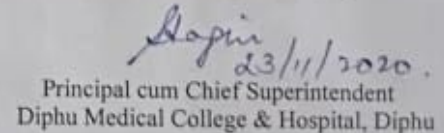 23/11/2020.
Principal cum Chief Superintendent
Diphu Medical College & Hospital, Diphu